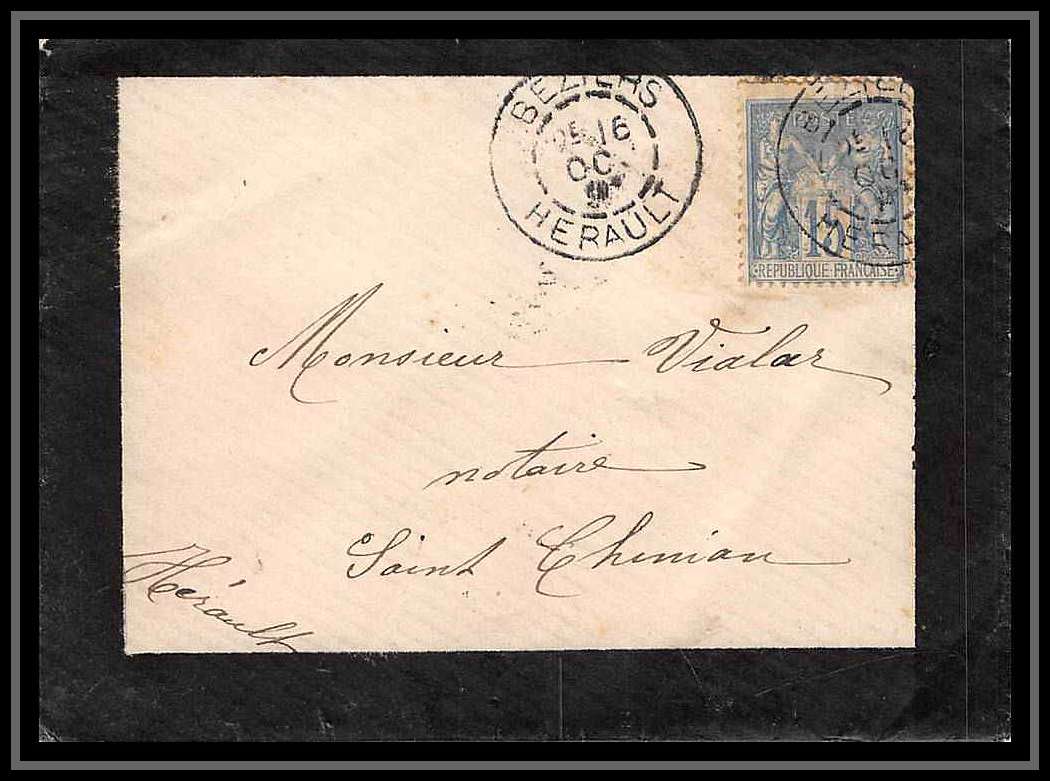 BEZIERS
16
OC
HERAULT
15
REPUBLIQUE FRANÇAISE
Monsieur Vialar
notaire
Saint Chinian
Hérault